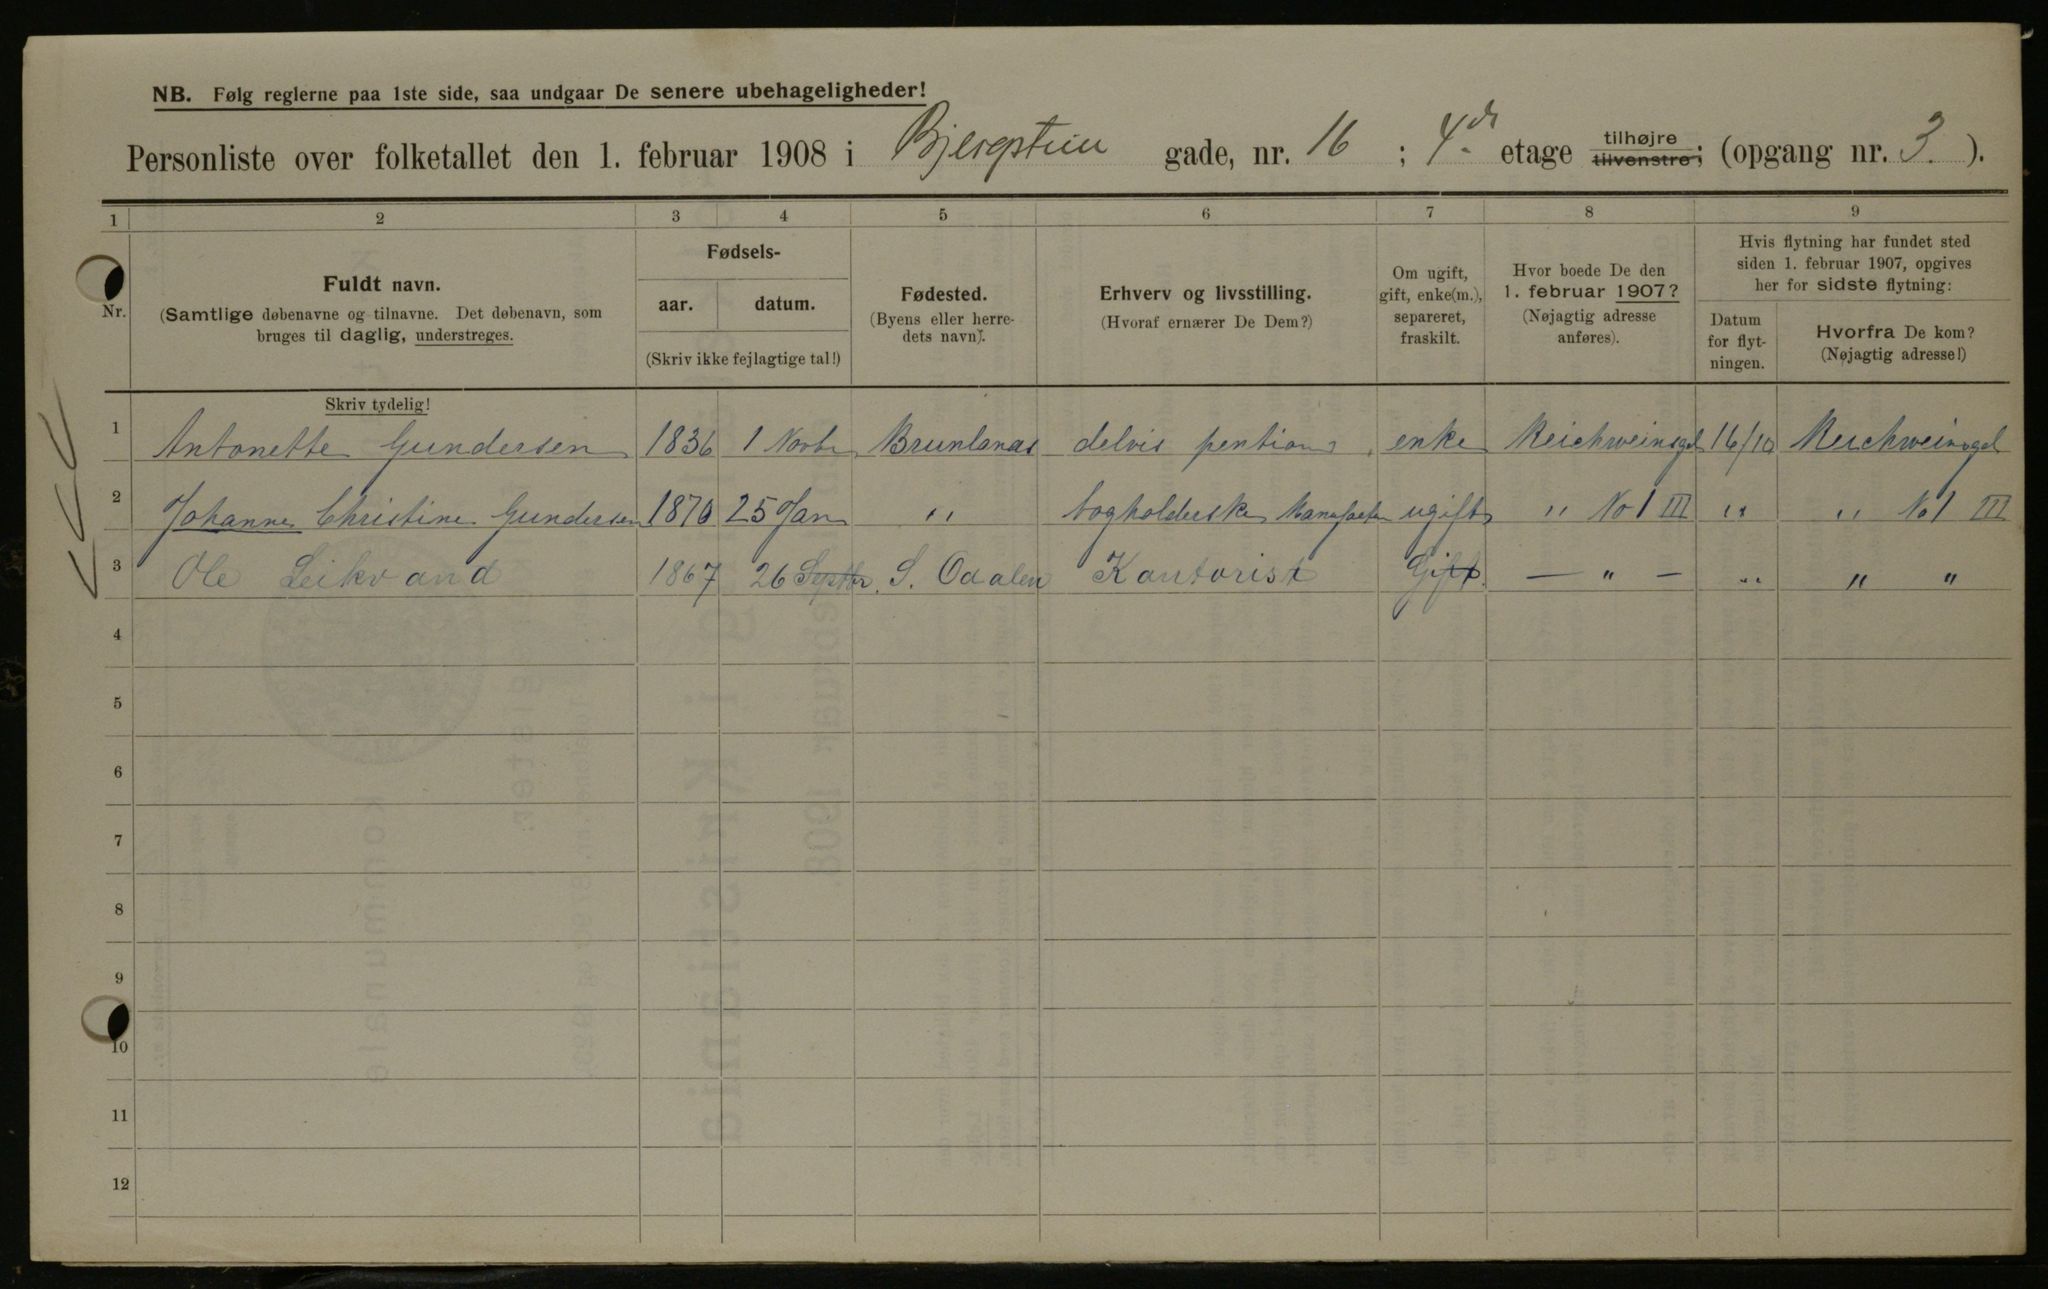 NB. Følg reglerne paa 1ste side, saa undgaar De senere ubehageligheder!
Personliste over folketallet den 1. februar 1908 i Bjergstien gade, nr. 16 ; 4de etage tilhøjre tilvenstre; (opgang nr. 3. ).
1 2 3 4 5 6 7 8 9
Nr.
Fuldt navn.
(Samtlige døbenavne og tilnavne. Det døbenavn, som
bruges til daglig, understreges.
Skriv tydelig!
Fødsels-
aar. datum.
(Skriv ikke fejlagtige tal!)
Fødested.
(Byens eller herre-
dets navn).
Erhverv og livsstilling.
(Hvoraf ernærer De Dem?)
Om ugift,
gift, enke(m.),
separeret,
fraskilt.
Hvor boede De den
1. februar 1907?
(Nøjagtig adresse
anføres).
Hvis flytning har fundet sted
siden 1. februar 1907, opgives
her for sidste flytning:
Datum
for flyt-
ningen.
Hvorfra De kom?
(Nøjagtig adresse!)
1 Antonette Gundersen 1836 1 Novbr Brunlanas delvis pention enke Reichweinsgd 16/10 Reichweinsgd
2 Johanne Christine Gundersen 1870 25 Jan " bogholderske Manufactur ugift " No 1 III " " No 1 III
3 Ole Leikvand 1867 26 Septbr. S. Odalen Kantorist Gift. — " — " " "
4
5
6
7
8
9
10
11
12